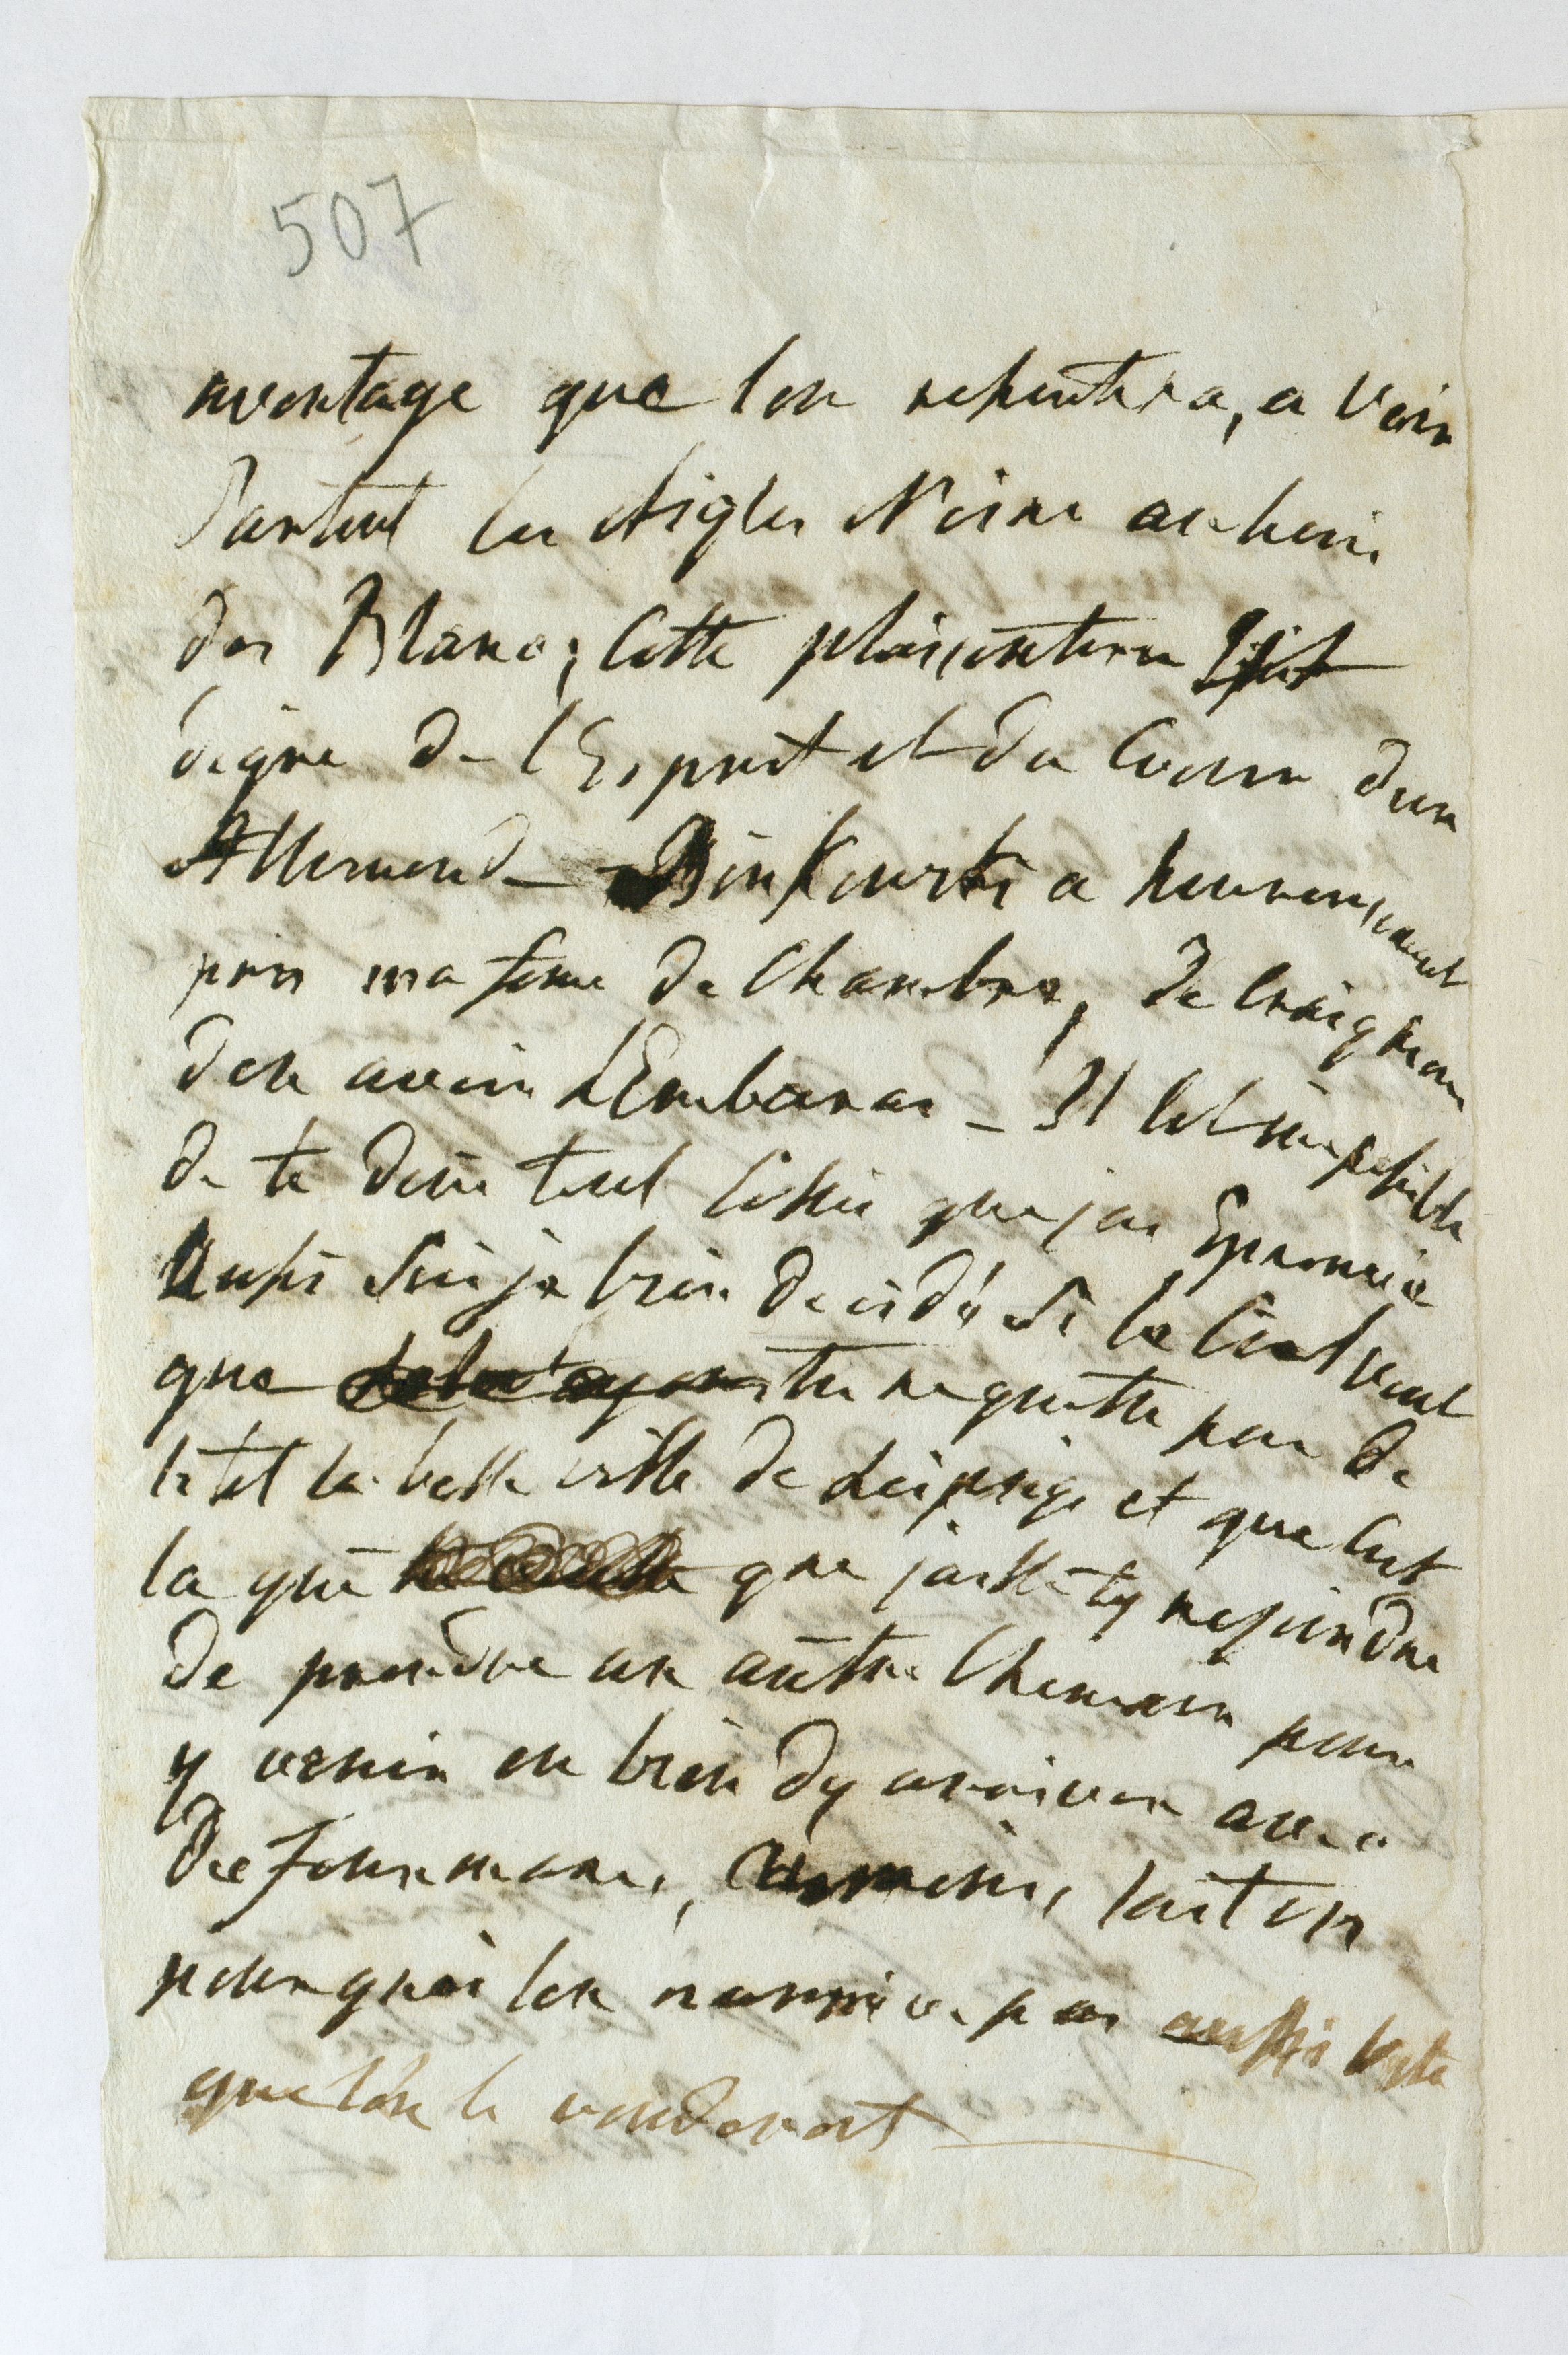 507
aventage que lon rehentera, a Voir
Partout les Aigles Noire au lieu
des Blanc; Cette plaisenterie Est
digne de l'Esprit et du Coeur dun
Allemend – Binkowski a heureusement
pris ma feme de Chambre, de Craigneau
den avoir L'Embaras – Il Est impossible
de te dire tout Cessie que jai Eprouvée
Aussi Sui je bien decidé Si le Ciel veut
que tu ne quitte pas de
si tot la belle ville de Leipsig et que Cest
la que que jaille ty rejoindre
de prendre un autre Chemain pour
y venir ou bien dy arriver avec
des fourmane, sait on
pourquoi lon narrive pas aussi vite
que lon le vouderoit